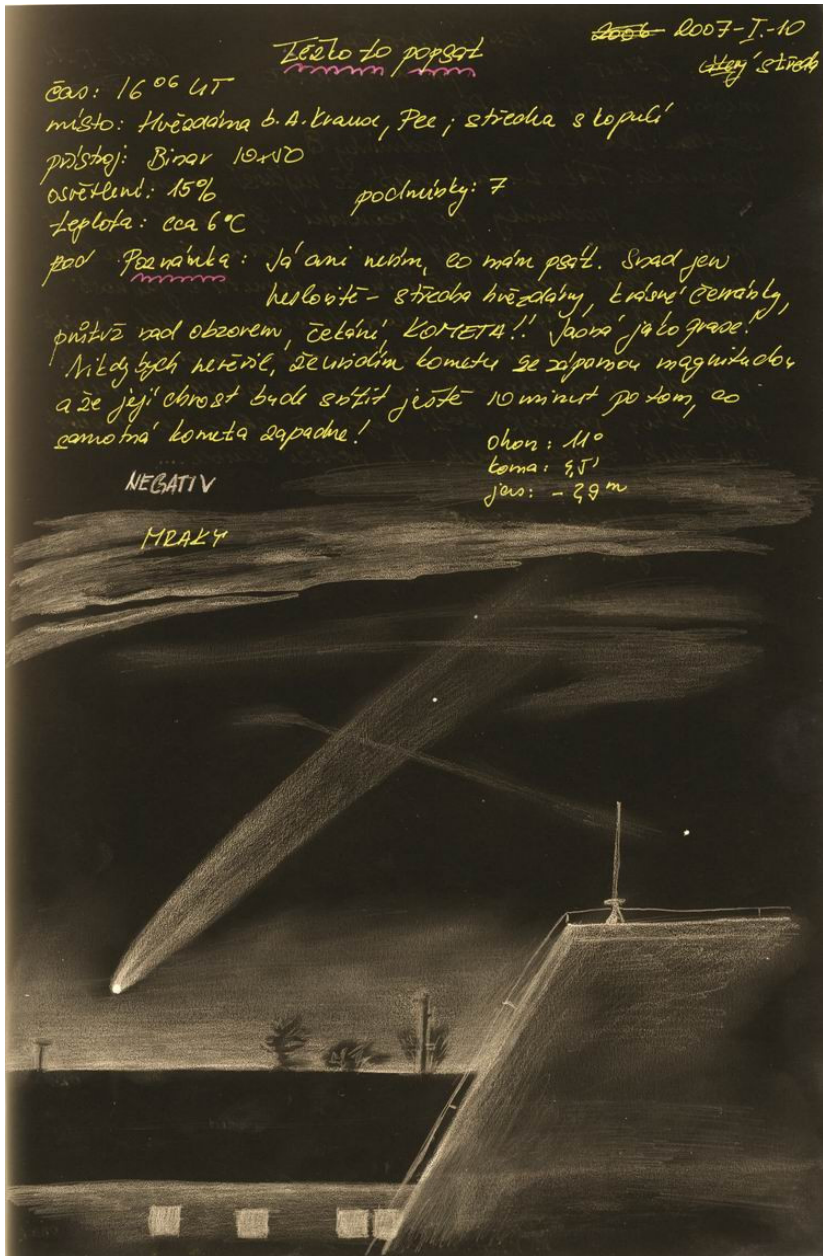 Těžko to popsat
2006 2007-I.-10
úterý středa
čas: 16 06 UT
místo: Hvězdárna b. A. Krause, Pce; střecha s kopulí
přístroj: Binar 10x50
osvětlení: 15%
podmínky: 7
teplota: cca 6°C
pod Poznámka: Já ani nevím, co mám psát. Snad jen
heslovitě - střecha hvězdárny, krásné červánky,
průtrž nad obzorem, čekání, KOMETA!! Jasná jako
Nikdy bych nevěřil, že uvidím kometu se zápornou magnitudou
a že její chvost bude svítit ještě 10 minut po tom, co
samotná kometa zapadne!
ohon: 11°
koma: 
jas: m
NEGATIV
MRAKY